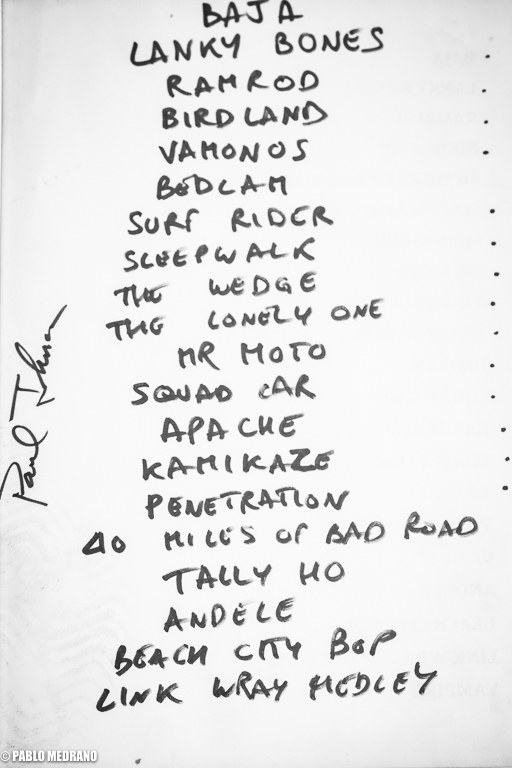 BAJA
LANKY BONES
RAMROD
BIRDLAND
VAMONOS
BEDLAM
SURF RIDER
SLEEPWALK
THE WEDGE
THE LONELY ONE
MR MOTO
SQUAD CAR
APACHE
KAMIKAZE
PENETRATION
40 MILES OF BAD ROAD
TALLY HO
ANDELE
BEACH CITY BOP
LINK WRAY MEDLEY
Paul Johnson
© PABLO MEDRANO